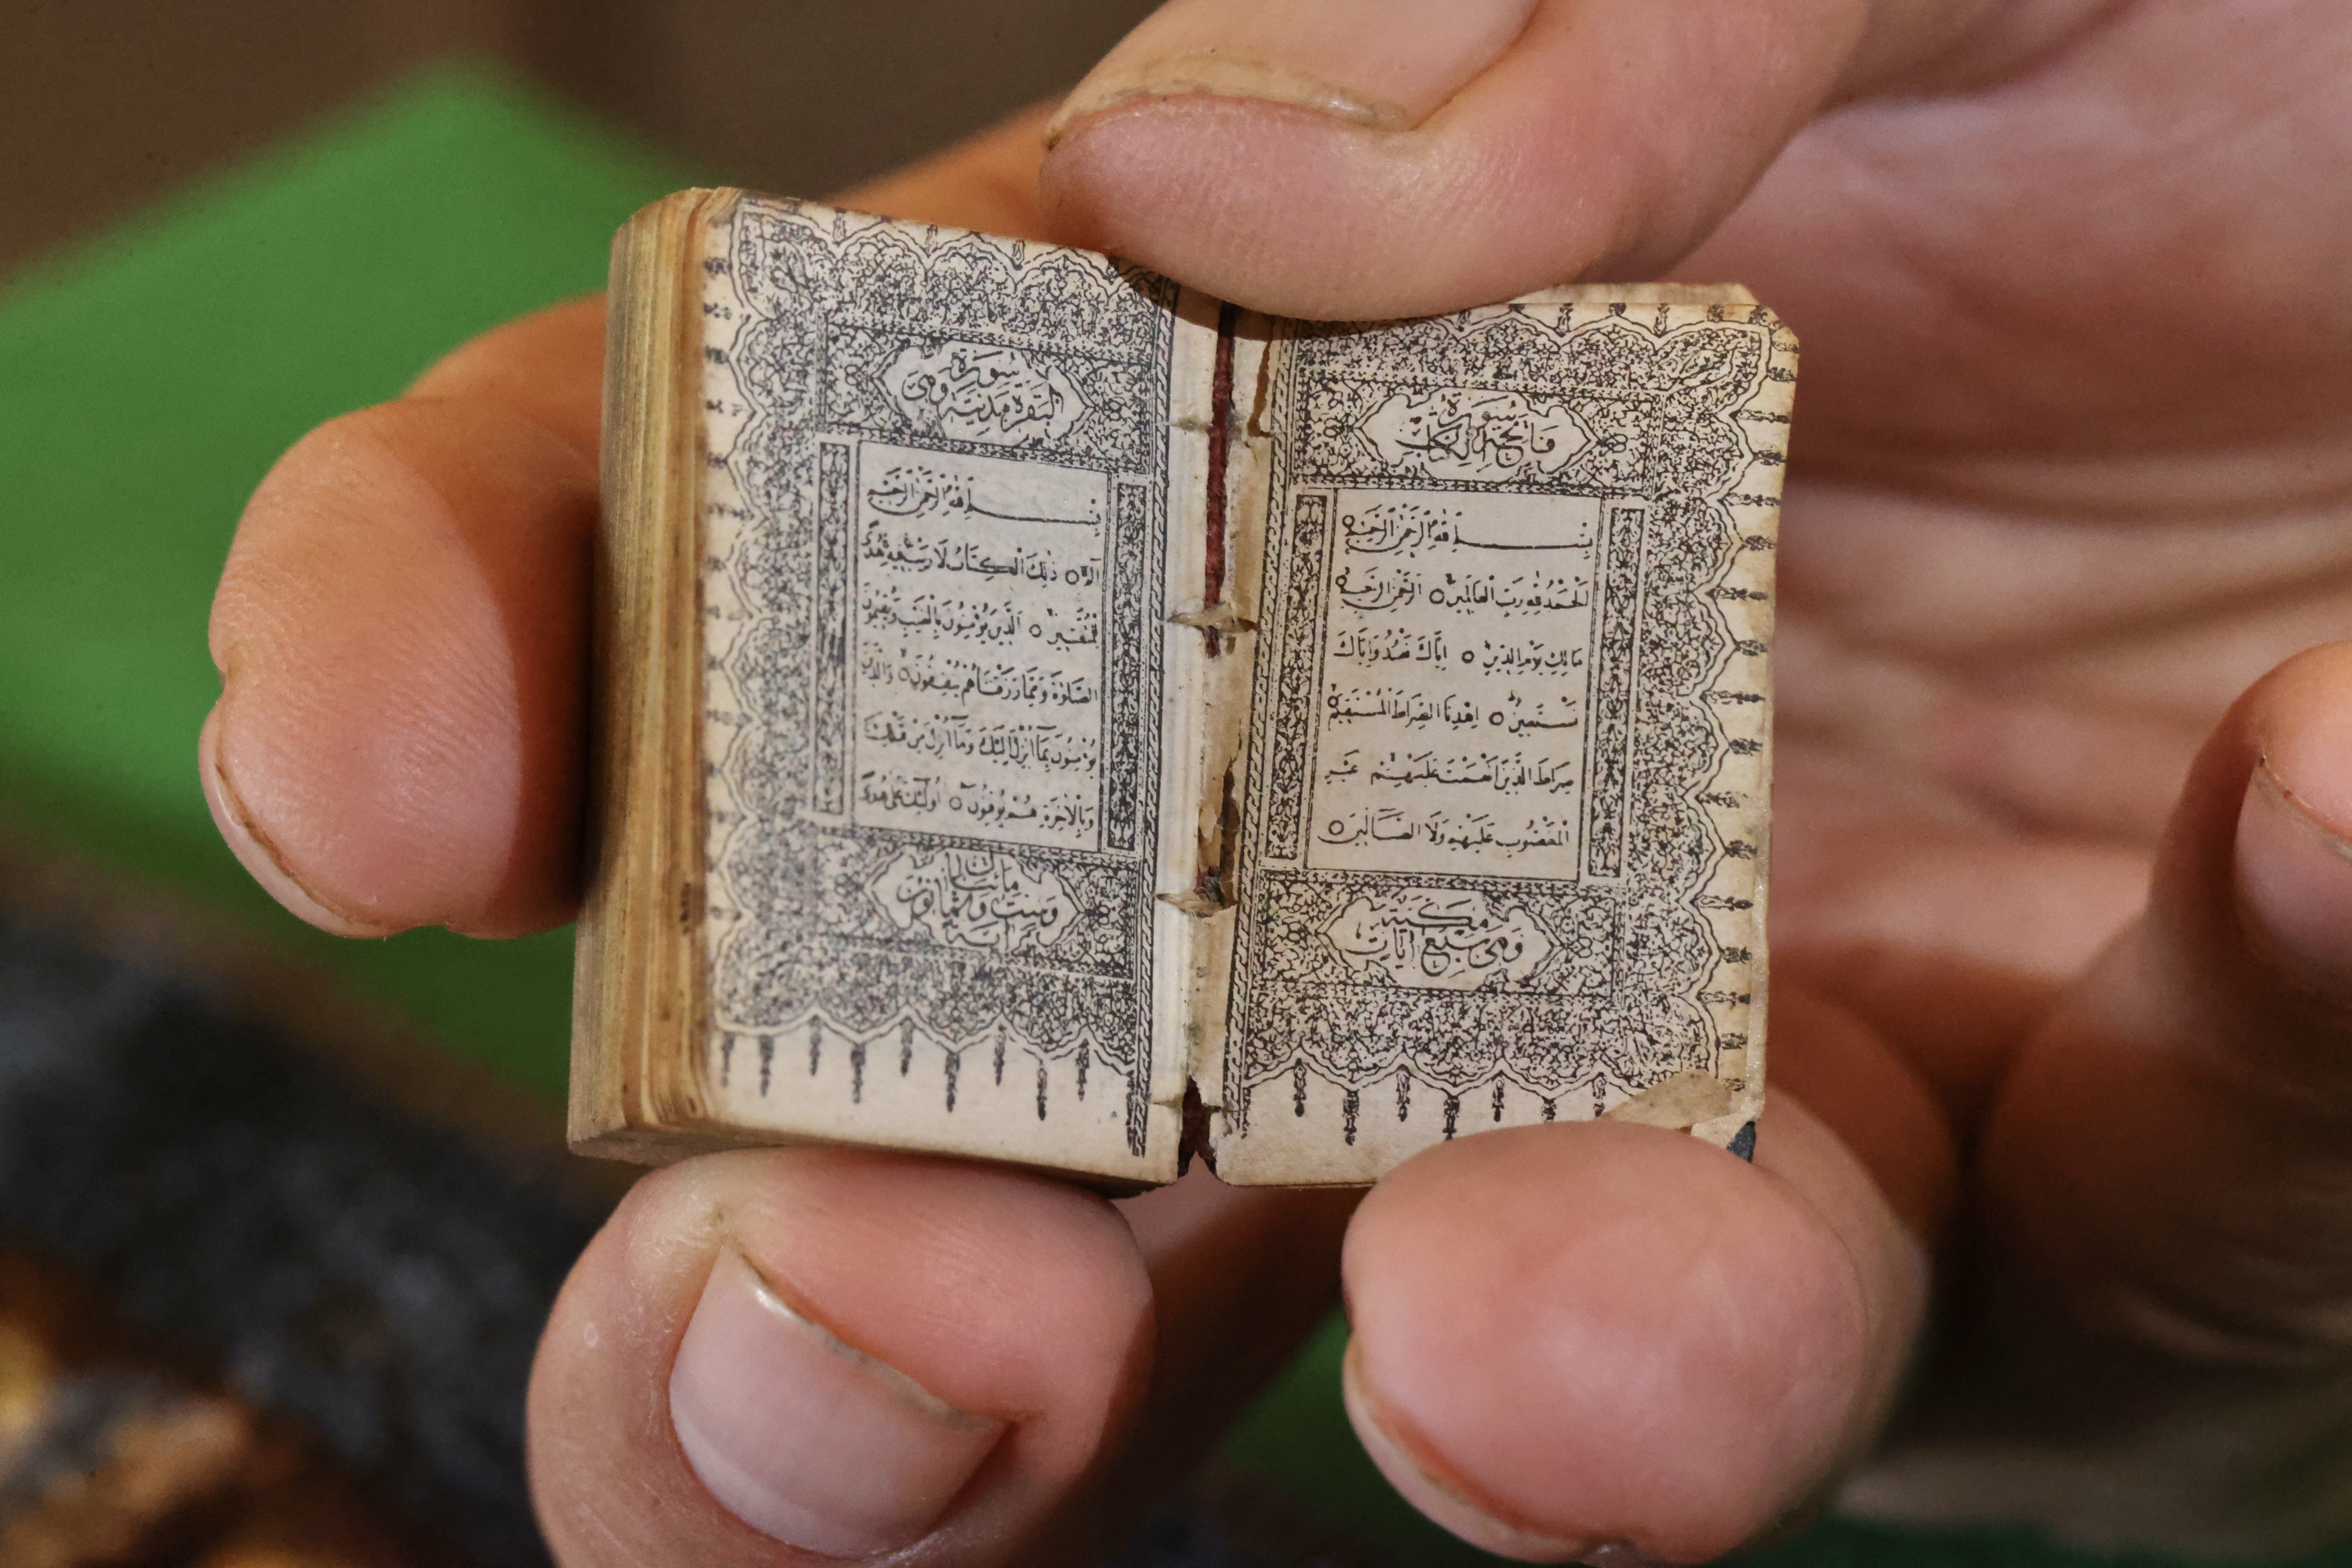 سُورَةُ
فَاتِحَةِ الْكِتَابِ
بِسْمِ اللهِ الرَّحْمٰنِ الرَّحِيمِ
اَلْحَمْدُ لِلّٰهِ رَبِّ الْعَالَمِينَ ○ اَلرَّحْمٰنِ الرَّحِيمِ ○
مَالِكِ يَوْمِ الدِّينِ ○ اِيَّاكَ نَعْبُدُ وَاِيَّاكَ
نَسْتَعِينُ ○ اِهْدِنَا الصِّرَاطَ الْمُسْتَقِيمَ ○
صِرَاطَ الَّذِينَ اَنْعَمْتَ عَلَيْهِمْ غَيْرِ
الْمَغْضُوبِ عَلَيْهِمْ وَلَا الضَّالِّينَ ○
مَكِّيَّةٌ
وَهِيَ سَبْعُ آيَاتٍ
سُورَةُ
الْبَقَرَةِ مَدَنِيَّةٌ وَهِيَ
بِسْمِ اللهِ الرَّحْمٰنِ الرَّحِيمِ
الٓمٓ ○ ذٰلِكَ الْكِتَابُ لَا رَيْبَ فِيهِ هُدًى
لِلْمُتَّقِينَ ○ اَلَّذِينَ يُؤْمِنُونَ بِالْغَيْبِ وَيُقِيمُونَ
الصَّلٰوةَ وَمِمَّا رَزَقْنَاهُمْ يُنْفِقُونَ ○ وَالَّذِينَ
يُؤْمِنُونَ بِمَٓا اُنْزِلَ اِلَيْكَ وَمَٓا اُنْزِلَ مِنْ قَبْلِكَ
وَبِالْاٰخِرَةِ هُمْ يُوقِنُونَ ○ اُولٰٓئِكَ عَلٰى هُدًى
مِائَتَانِ
وَسِتٌّ وَثَمَانُونَ
آيَةً